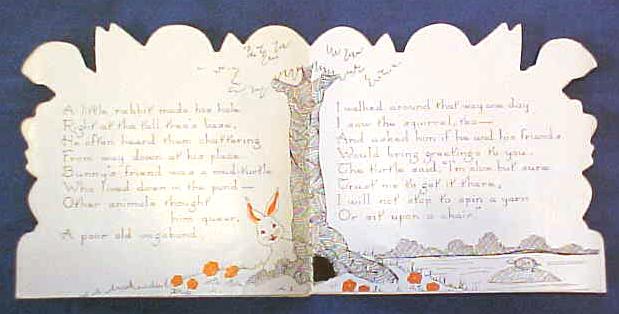 A little rabbit made his hole
Right at the tall tree's base,
He often heard them chattering
From way down at his place.
Bunny's friend was a mud-turtle
Who lived down in the pond —
Other animals thought
him queer,
A poor old vagabond.
I walked around that way one day
I saw the squirrel, too —
And asked him if he and his friends
Would bring greetings to you.
The turtle said, "I'm slow but sure
Trust me to get it there,
I will not stop to spin a yarn
Or sit upon a chair."